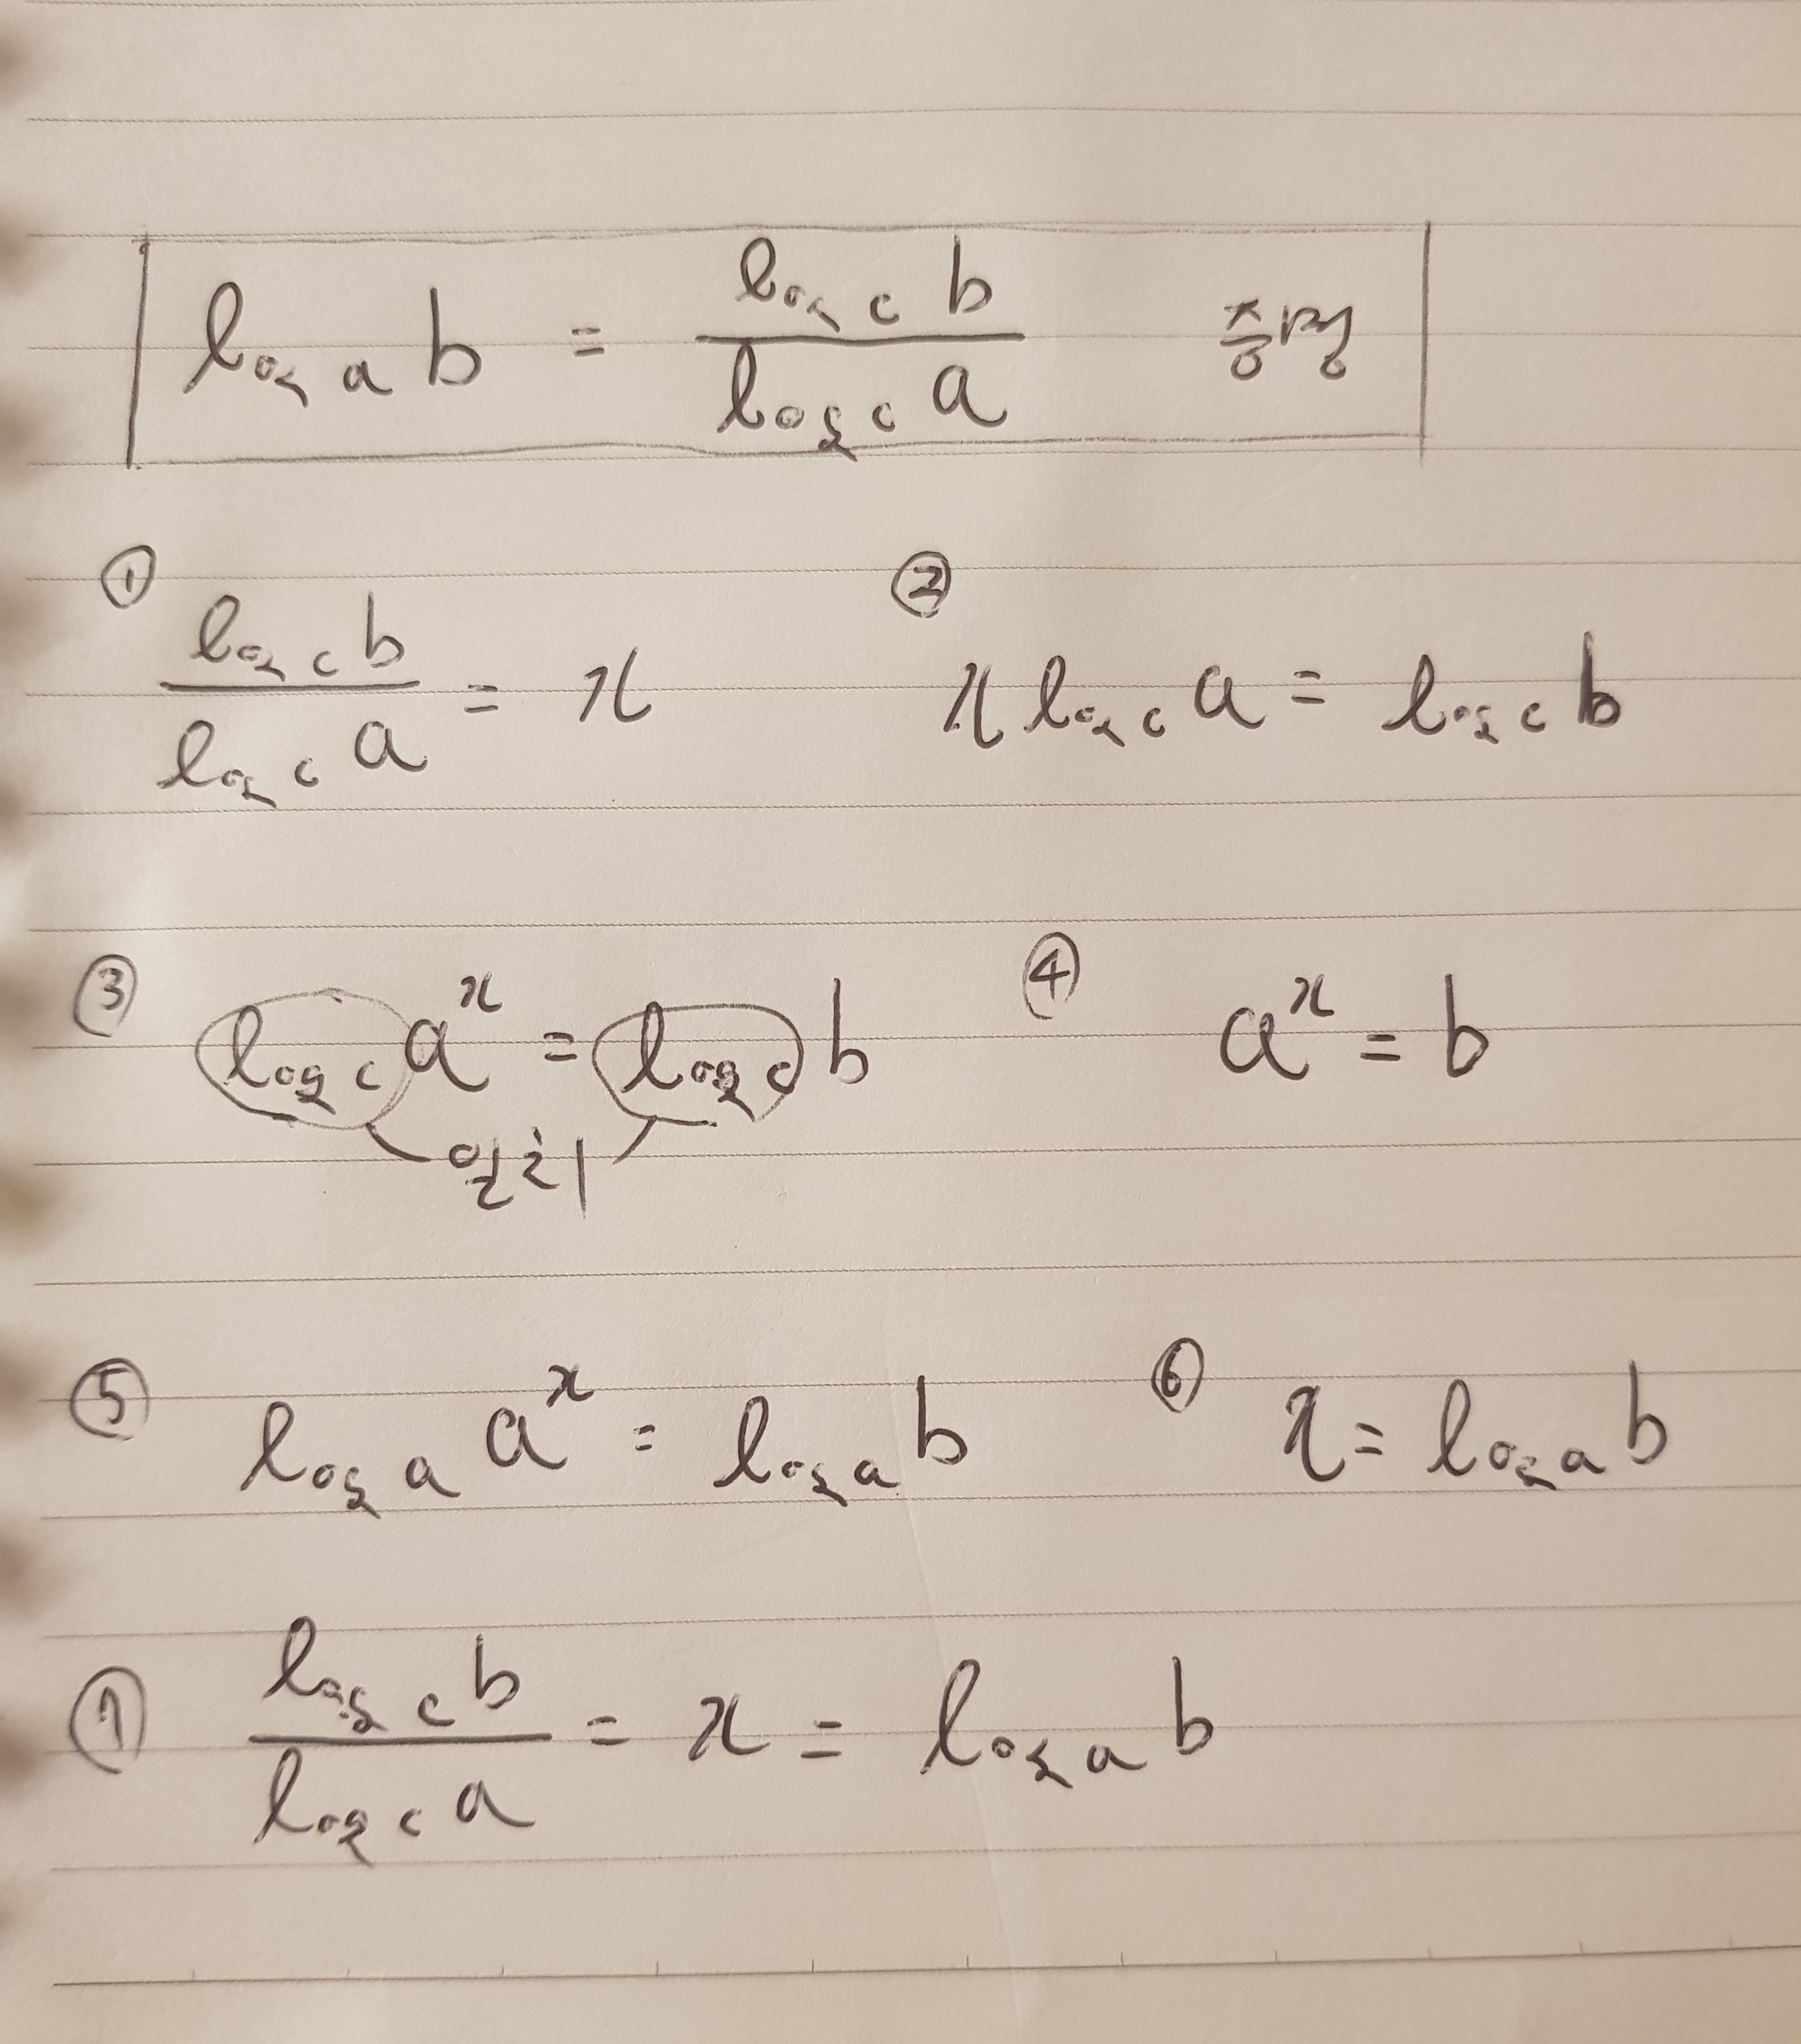 logₐ b = log_c b / log_c a 증명
① log_c b / log_c a = x
② x log_c a = log_c b
③ log_c aˣ = log_c b
일치
④ aˣ = b
⑤ logₐ aˣ = logₐ b
⑥ x = logₐ b
⑦ log_c b / log_c a = x = logₐ b